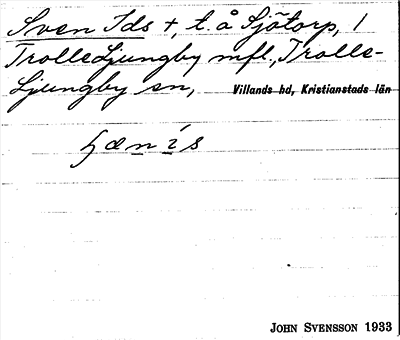 Sven Ids +, t. å Sjötorp, 1
TrolleLjungby mfl., Trolle-
Ljungby sn, Villands hd, Kristianstads län
hænís
JOHN SVENSSON 1933